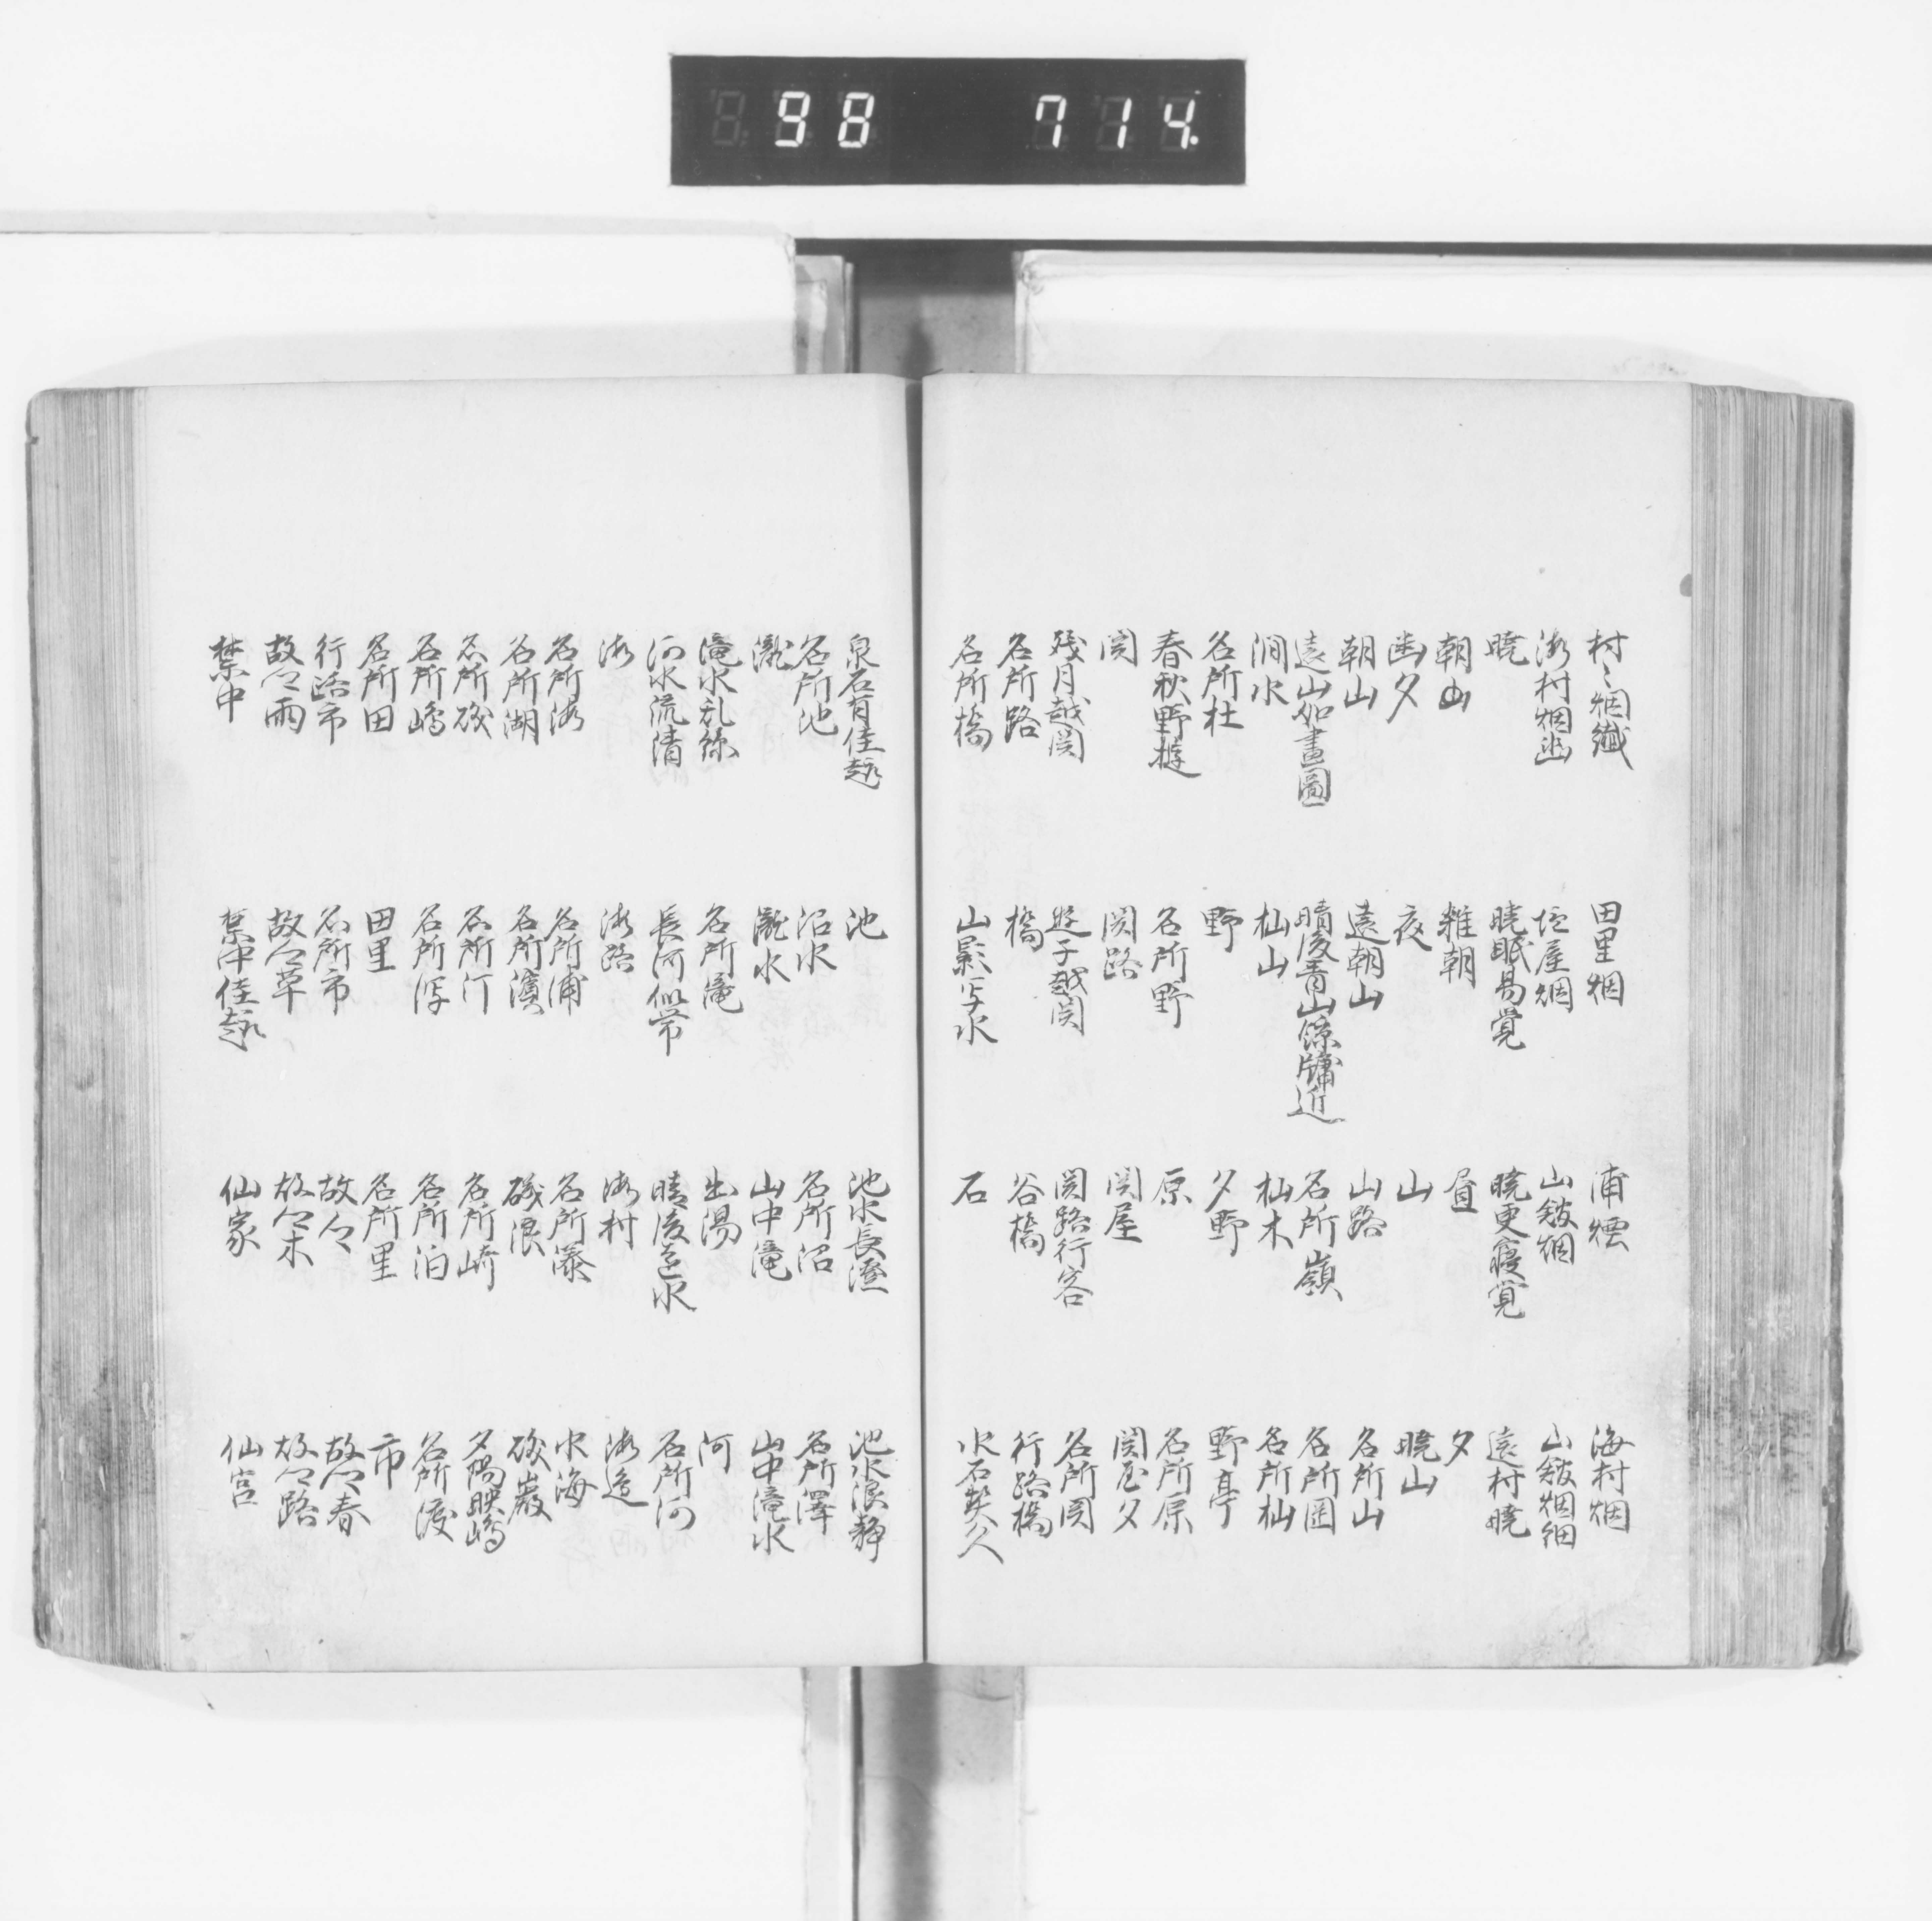 98 714.
村々烟纖 田里烟 浦煙 海村烟
海村烟幽 塩屋烟 山館烟 山館烟細
暁 暁眠易覚 暁更寝覚 遠村暁
朝 雑朝 昼 夕
幽夕 夜 山 暁山
朝山 遠朝山 山路 名所山
遠山如畫圖 晴後青山臨牖近 名所嶺 名所岡
澗水 杣山 杣木 名所杣
名所杜 野 夕野 野亭
春秋野遊 名所野 原 名所原
関 関路 関屋 関屋夕
残月越関 遊子越関 関路行客 名所関
名所路 橋 谷橋 行路橋
名所橋 山影写水 石 水石契久
泉石有佳趣 池 池水長澄 池水浪静
名所池 沼水 名所沼 名所澤
瀧 瀧水 山中滝 山中滝水
滝水乱絲 名所滝 出湯 河
河水流清 長河似帯 晴後遠水 名所河
海 海路 海村 海邊
名所海 名所浦 名所 水海
名所湖 名所濱 磯浪 磯巌
名所磯 名所汀 名所崎 夕陽映嶋
名所嶋 名所潟 名所泊 名所渡
名所田 田里 名所里 市
行路市 名所市 故郷 故郷春
故郷雨 故郷草 故郷木 故郷路
禁中 禁中佳趣 仙家 仙宮